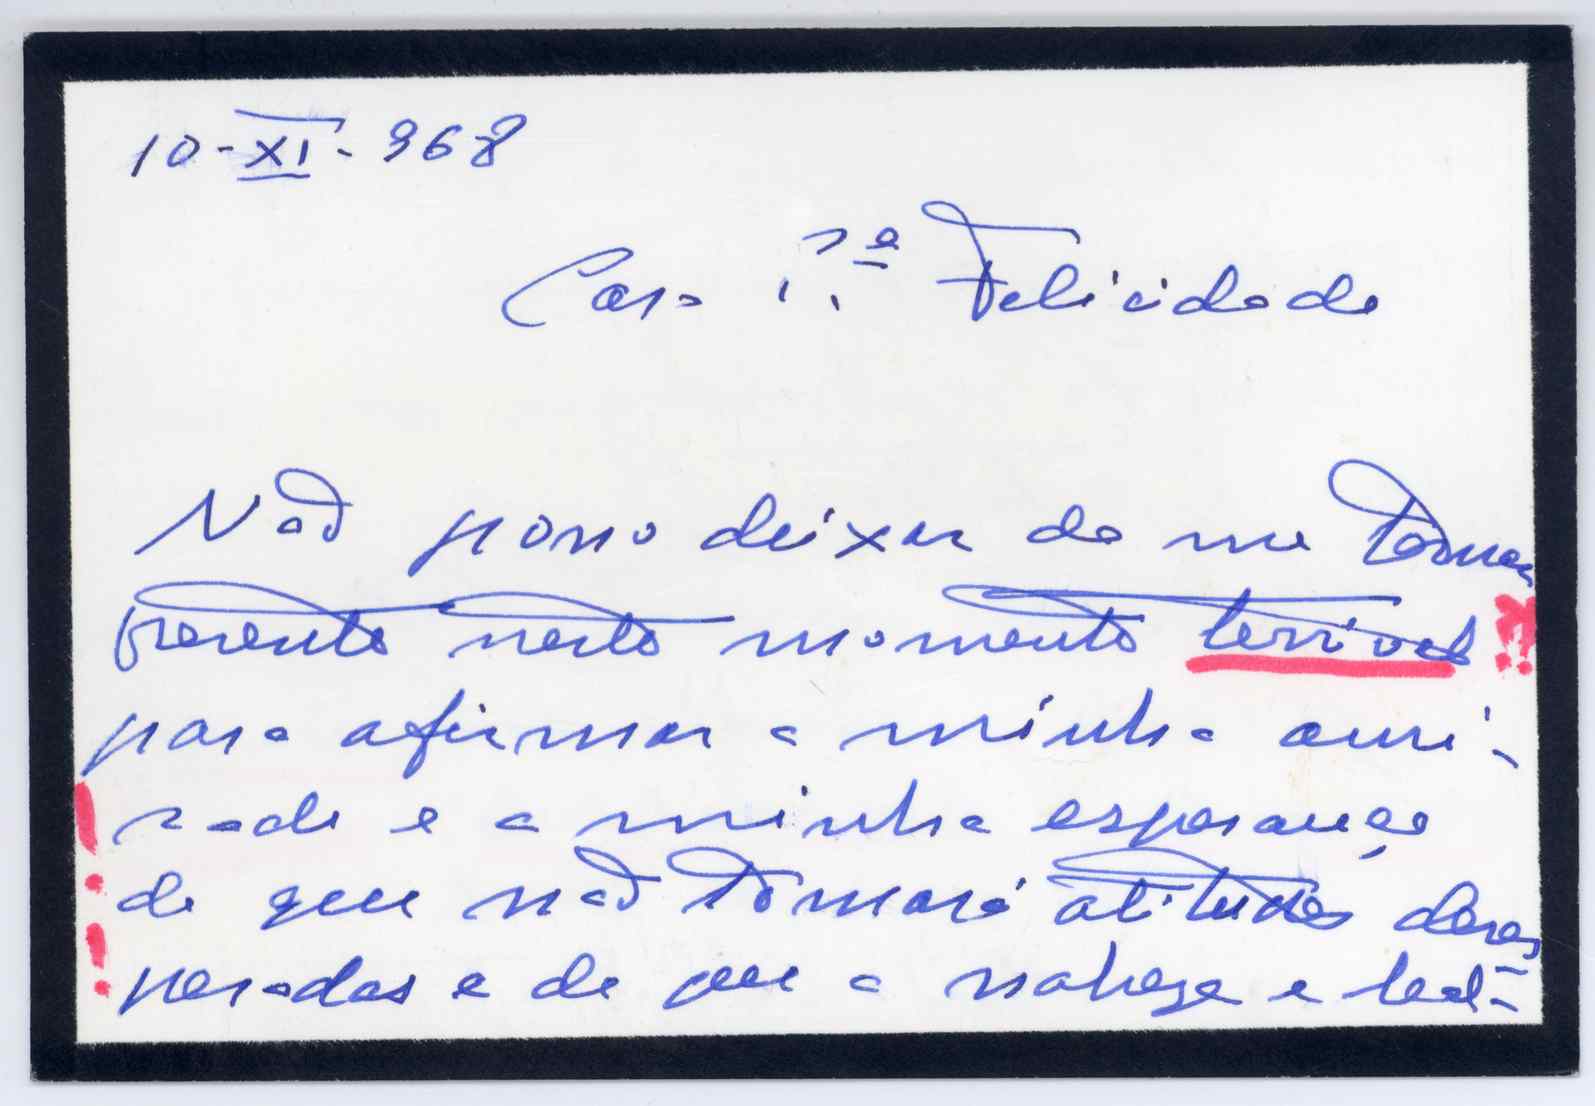 10-XI-968
Cara S.ª Felicidade
Não posso deixar de me tornar
presente neste momento terrivel
para afirmar a minha ami-
zade e a minha esperança
de que não tomará atitudes deses-
peradas e de que a nobreza e leal-